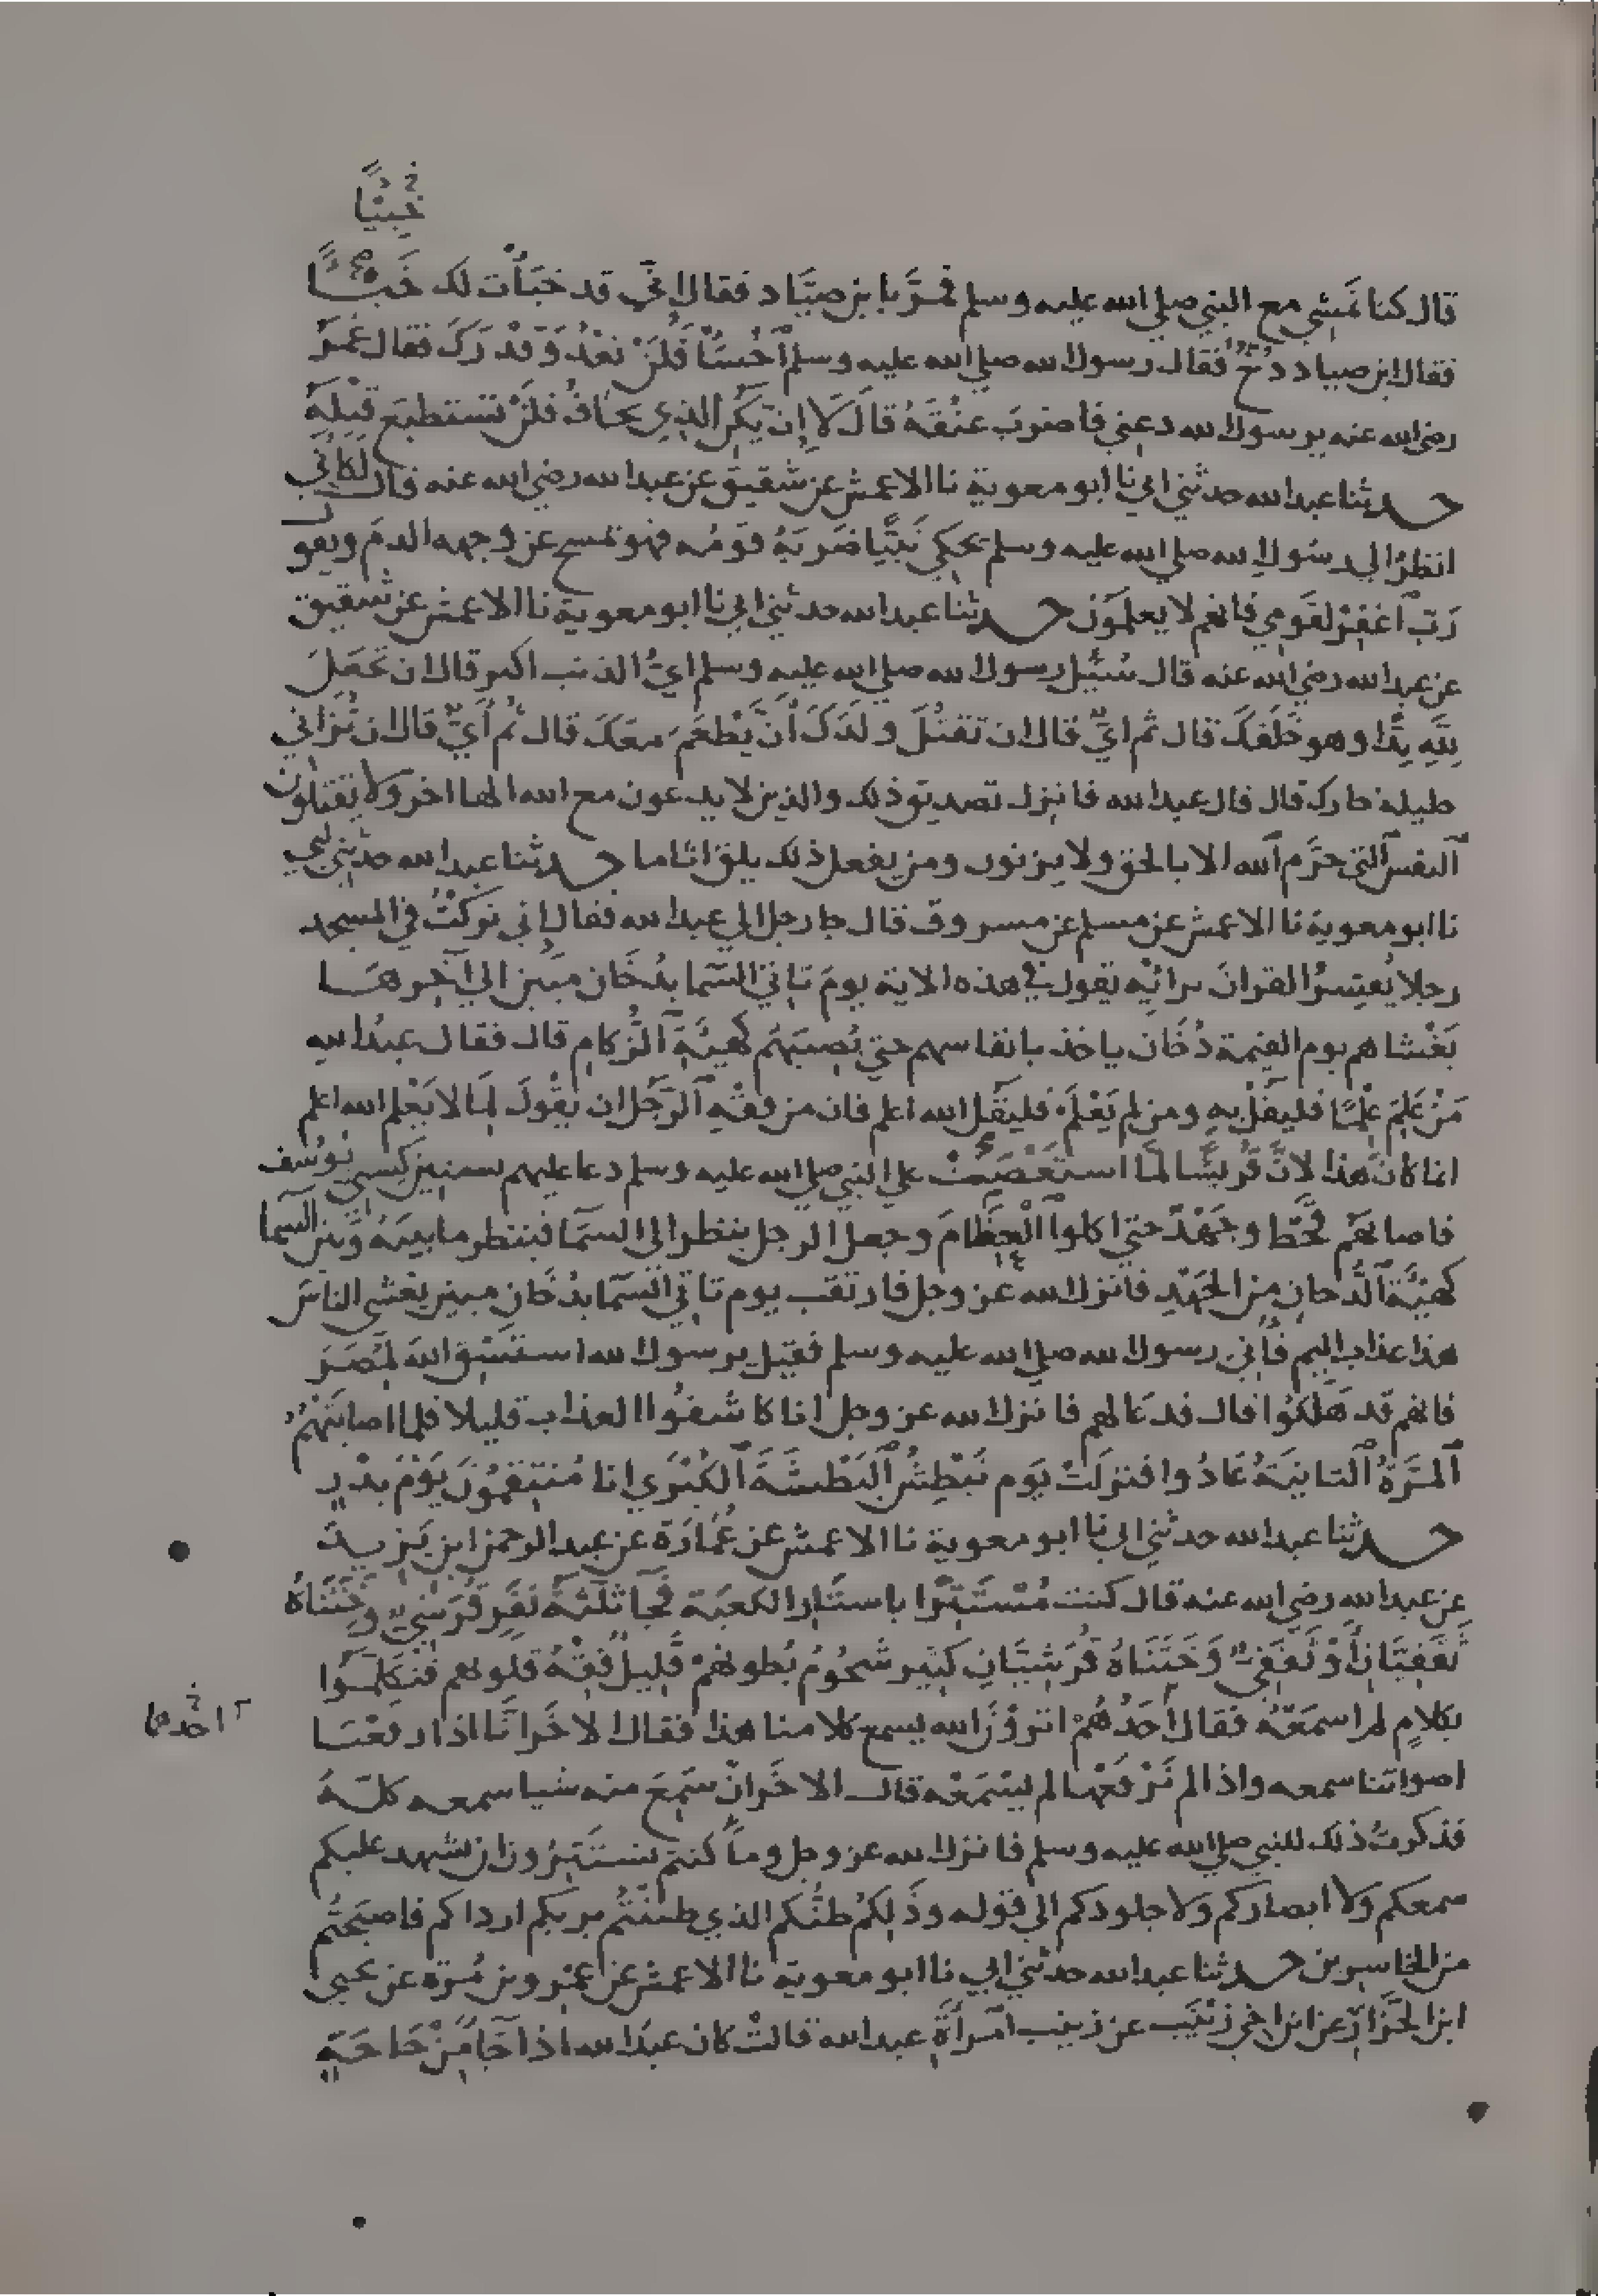 خبيئًا
قال كنا نمشي مع النبي صلي الله عليه وسلم فمرَّ بابن صيَّاد فقال إني قد خبَأت لك خَبـــا
فقال ابن صياد دخ فقال رسول الله صلي الله عليه وسلم أخسَأ فلَن تعْدُوَ قدْرَكَ فقال عُمَرُ
رضي الله عنه يرسول الله دعني فاضربَ عنُقَهُ قالَ لَا إن يَكُنِ الذي يخافُ فلَنْ تستطيعَ قَتْلَهُ
حدثنا عبد الله حدثني ابي نا ابو معوية نا الاعمش عن شقيق عن عبد الله رضي الله عنه قال لكاني
انظُرُ الي رسُولِ الله صلي الله عليه وسلم يحكي نَبيًّا ضرَبَهُ قومُه فهو يمسح عن وجهه الدمَ ويقول
رَبِّ اغفِرْ لقَومي فانهم لا يعلمُونَ حدثنا عبد الله حدثني ابي نا ابو معوية نا الاعمش عن شقيق
عن عبد الله رضي الله عنه قال سُئِلَ رسول الله صلي الله عليه وسلم ايُّ الذنب اكبر قال ان تَجعَلَ
لِلَّهِ نِدًّا وهو خلَقكَ قال ثم ايٌّ قال ان تقتُلَ ولَدَكَ أَن يَّطْعَمَ معَكَ قال ثم أَيٌّ قال ان تُزاني
حليلة جارك قال قال عبد الله فانزل تصديق ذلك والذين لا يدعون مع الله الها اخر ولا يقتلون
النفس التي حرَّم الله الا بالحق ولا يزنون ومن يفعل ذلك يلق اثاما حدثنا عبد الله حدثني ابي
نا ابو معوية نا الاعمش عن مسلم عن مسروق قال جا رجل الي عبد الله فقال إني تركتُ في المسجد
رجلا يُفسِّرُ القرانَ برائِه يقول في هذه الاية يومَ تاتي السَّما بدُخَان مبين الي آخرهــا
يَغْشاهم يوم القيمة دُخَان ياخذ بانفاسهم حتي يُصيبَهُم كهيئَةِ الزُّكامِ قال فقال عبدُ الله
مَنْ عَلِمَ عِلْمًا فليقُلْ بِهِ ومن لم يَعْلَمْ فليقُل الله اعلم فان من فقْهِ الرَّجُل ان يقُولَ لِمَا لا يَعْلم الله اعلم
انما كانَ هذا لانَّ قُريشًا لمَّا استَعْصَتْ علي النبي صلي الله عليه وسلم دعا عليهم بسنين كسِني يُوسُف
فاصابهُم قحْط وجَهْدٌ حتي اكلوا الْعِظامَ وجعل الرجل ينظر الي السَّمَا فينظر ما بينَهُ وبَين السما
كهيئَةِ الدُّخانِ مِن الجَهْدِ فانزل الله عز وجل فارتقب يوم تاتي السَّمَا بدُخان مبين يغشي الناسَ
هذا عذاب اليم فأتي رسول الله صلي الله عليه وسلم فقيل يرسول الله استَسْقِ الله لمُضَرَ
فانهم قد هَلكُوا قال فدعَا لهم فانزل الله عز وجل انا كاشفُوا العذاب قليلا فلما اصابَتْهُمُ
المَرَّةُ الثانيَةُ عَادُوا فنزلَتْ يَوم نَبْطِشُ الْبَطْشَةَ الكُبْرَي انا مُنتقِمُونَ يَوْمَ بَدْرٍ
حدثنا عبد الله حدثني ابي نا ابو معوية نا الاعمش عن عُمَارَة عن عبد الرحمن ابن يَزيــد
عن عبد الله رضي الله عنه قال كنت مُسْتَتِرًا باستَارِ الكعبَة فجآ ثلثَةُ نفَرٍ قُرَشيٌّ وخَتَنَاهُ
ثَقَفيَّانِ أَوْ ثَقَفيٌّ وَخَتَنَاهُ قُرَشيَّانِ كثير شحُومُ بُطونهمْ قليل فِقْهُ قلوبهم فتكلَّمُوا
بكلامٍ لم اسمَعْهُ فقال أَحَدُهُمْ اترَوْنَ الله يسمع كلامنا هذا فقال الاخَر انَّا اذا رفَعْنــا
احدهما
اصواتنا سمعه واذا لم نَرْفَعْها لم يسْمَعْه قال الاخَر انْ سَمِعَ منه شيا سمعه كلَّــهُ
فذكرتُ ذلك للنبي صلي الله عليه وسلم فانزل الله عز وجل ومَا كنتم تستَتِرُون ان يشهد عليكم
سمعكم وَلا ابصاركم ولا جلودكم الي قوله وذَلِكُم ظنُّكم الذي ظنَنْتُم بربكم ارداكم فاصبَحْتُم
من الخاسرين حدثنا عبد الله حدثني ابي نا ابو معوية نا الاعمش عن عَمْرو بن مُرَّة عن يحيي
ابن الجَزَّار عن ابن اخي زيْنَب عن زينب امرأَةِ عبد الله قالتْ كان عبدُ الله اذا جَا مِنْ حَاجَةٍ